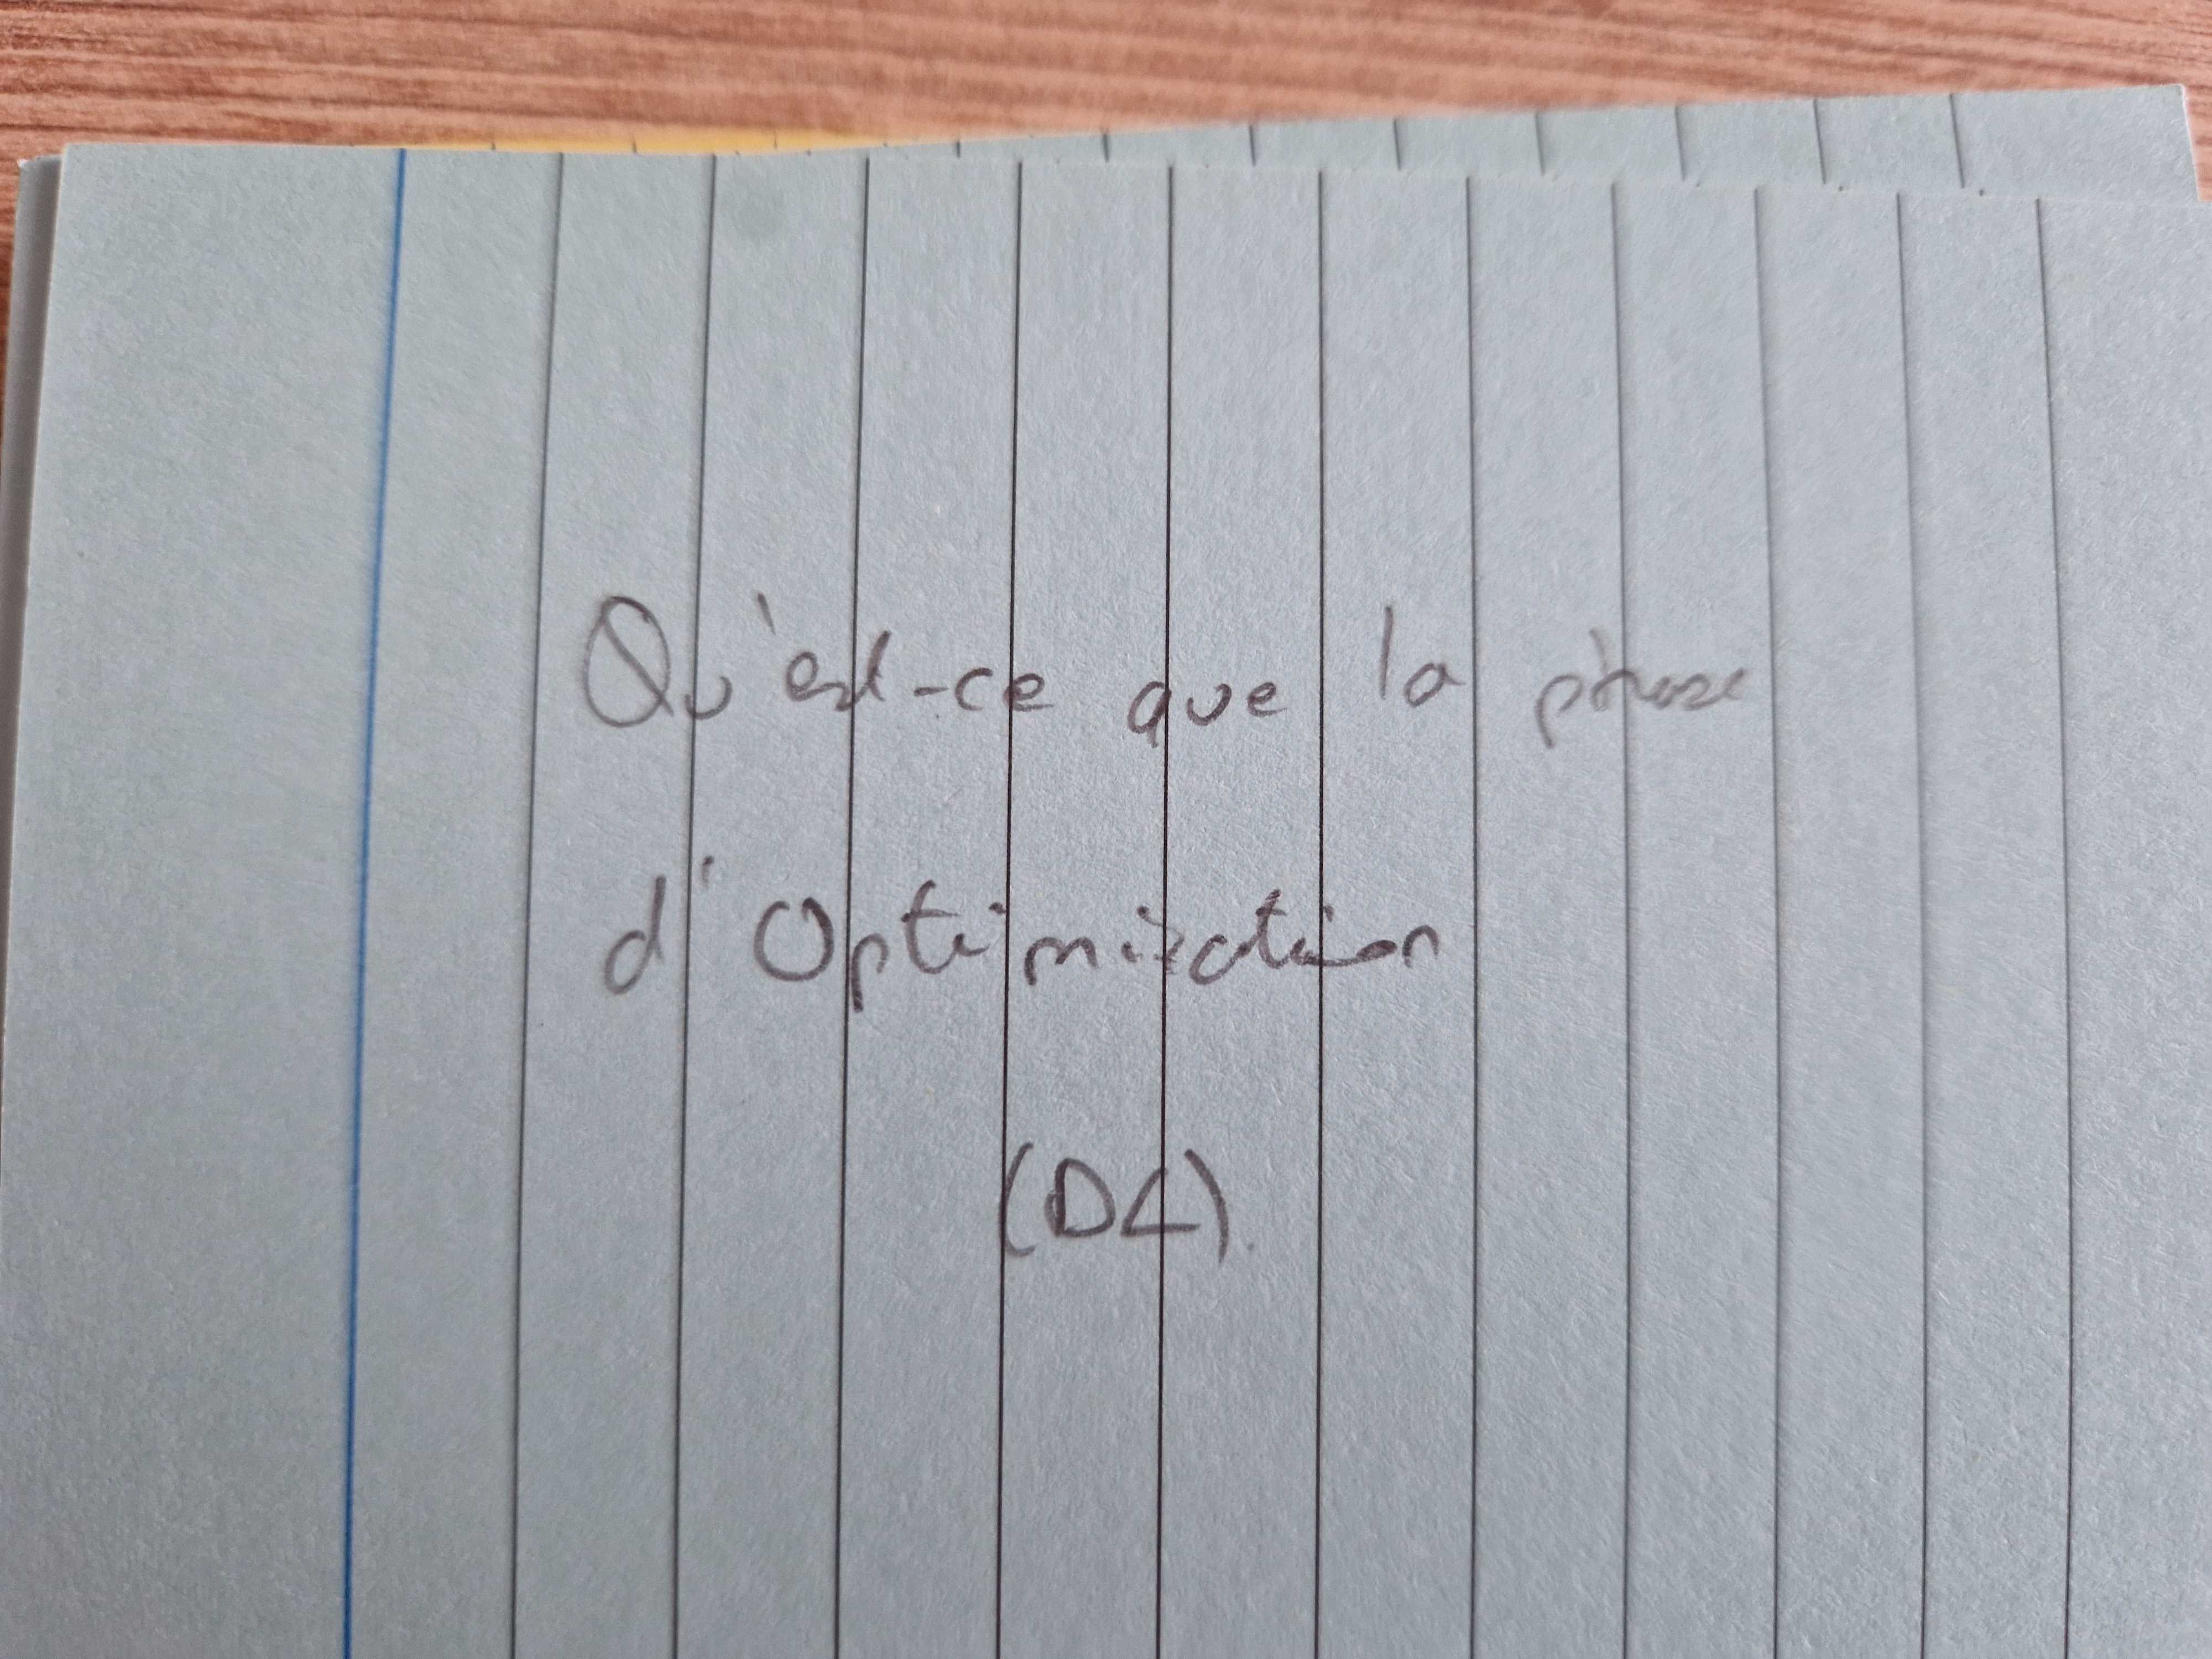 Qu'est-ce que la phase
d'Optimisation
(DL)